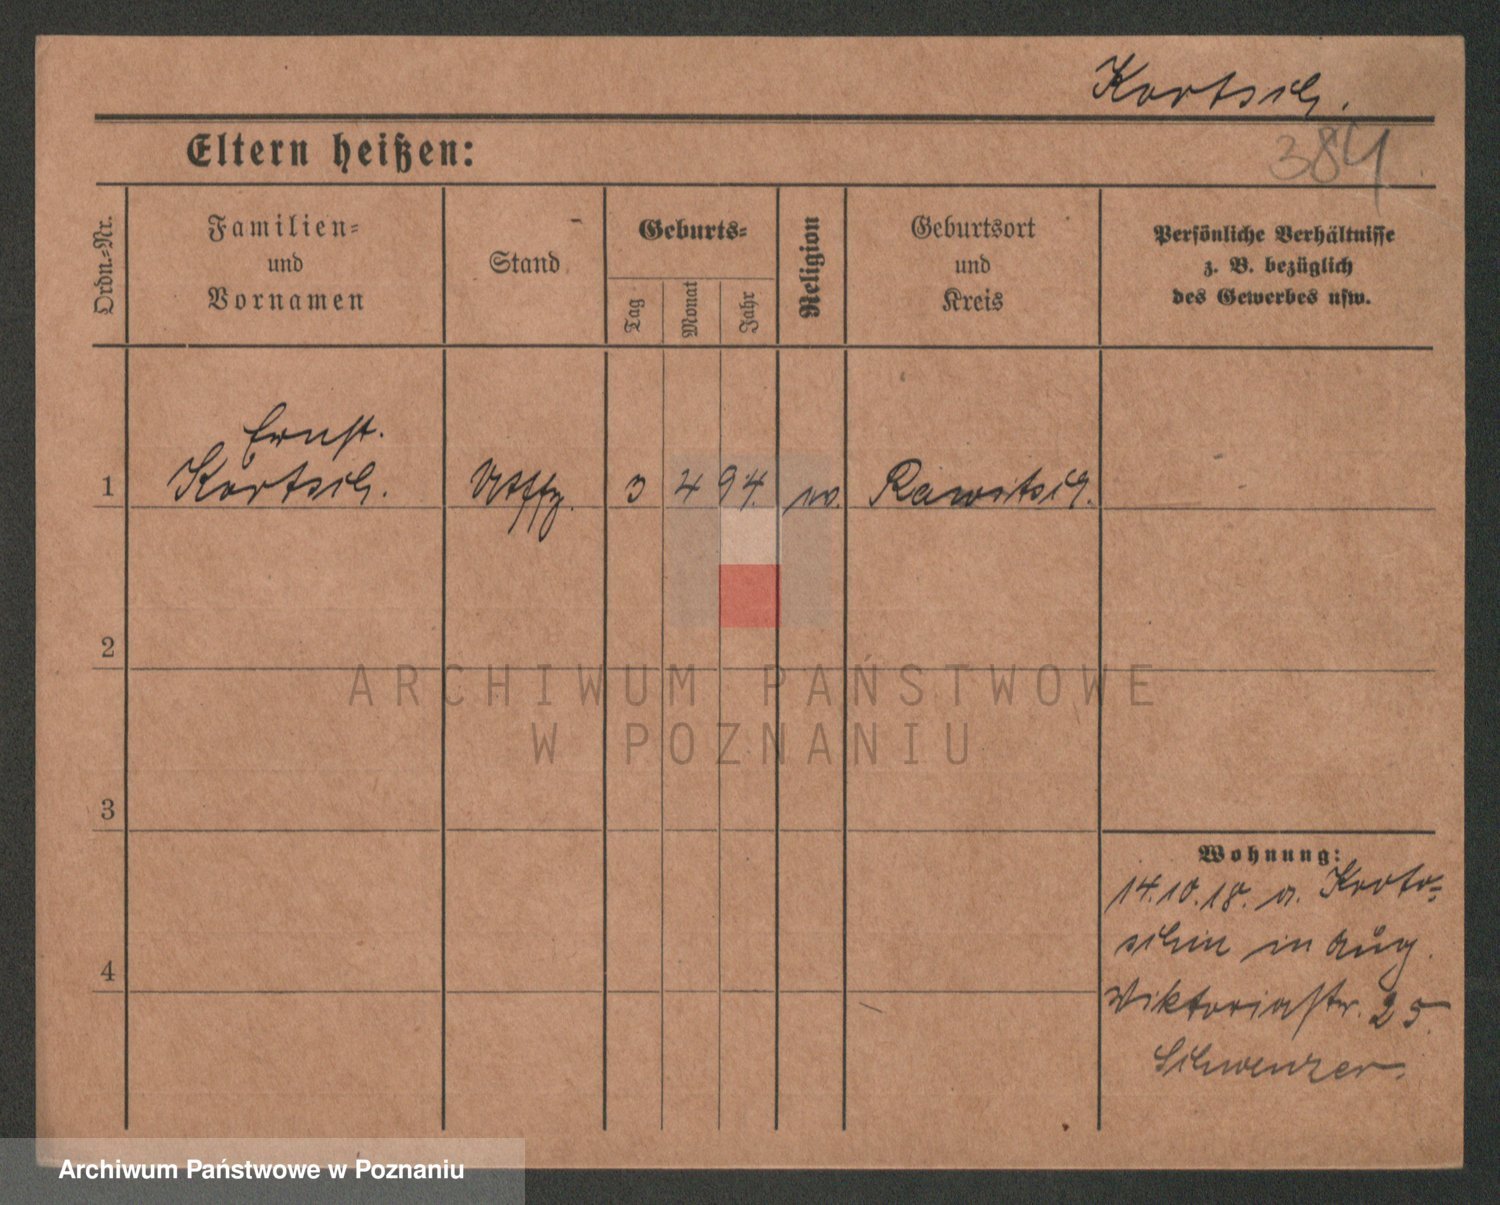 Kortsch.
384
Eltern heißen:
Ordn.=Nr.
Familien=
und
Vornamen
Stand
Geburts=
Tag
Monat
Jahr
Religion
Geburtsort
und
Kreis
Persönliche Verhältnisse
z. B. bezüglich
des Gewerbes usw.
Ernst.
1 Kortsch. 3 4 94. Rawitsch.
2
3
4
Wohnung:
14.10.18. Kroto=
schin in
Viktoriastr. 25.
Schwenzer.
ARCHIWUM PAŃSTWOWE
W POZNANIU
Archiwum Państwowe w Poznaniu